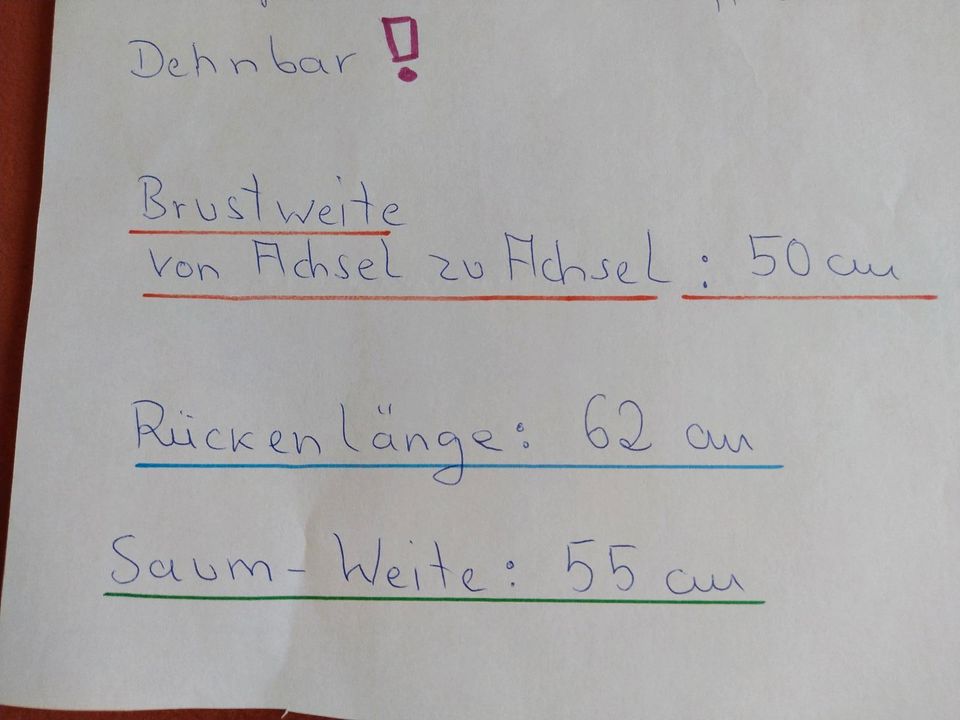 Dehnbar !
Brustweite
von Achsel zu Achsel : 50 cm
Rückenlänge: 62 cm
Saum-Weite: 55 cm